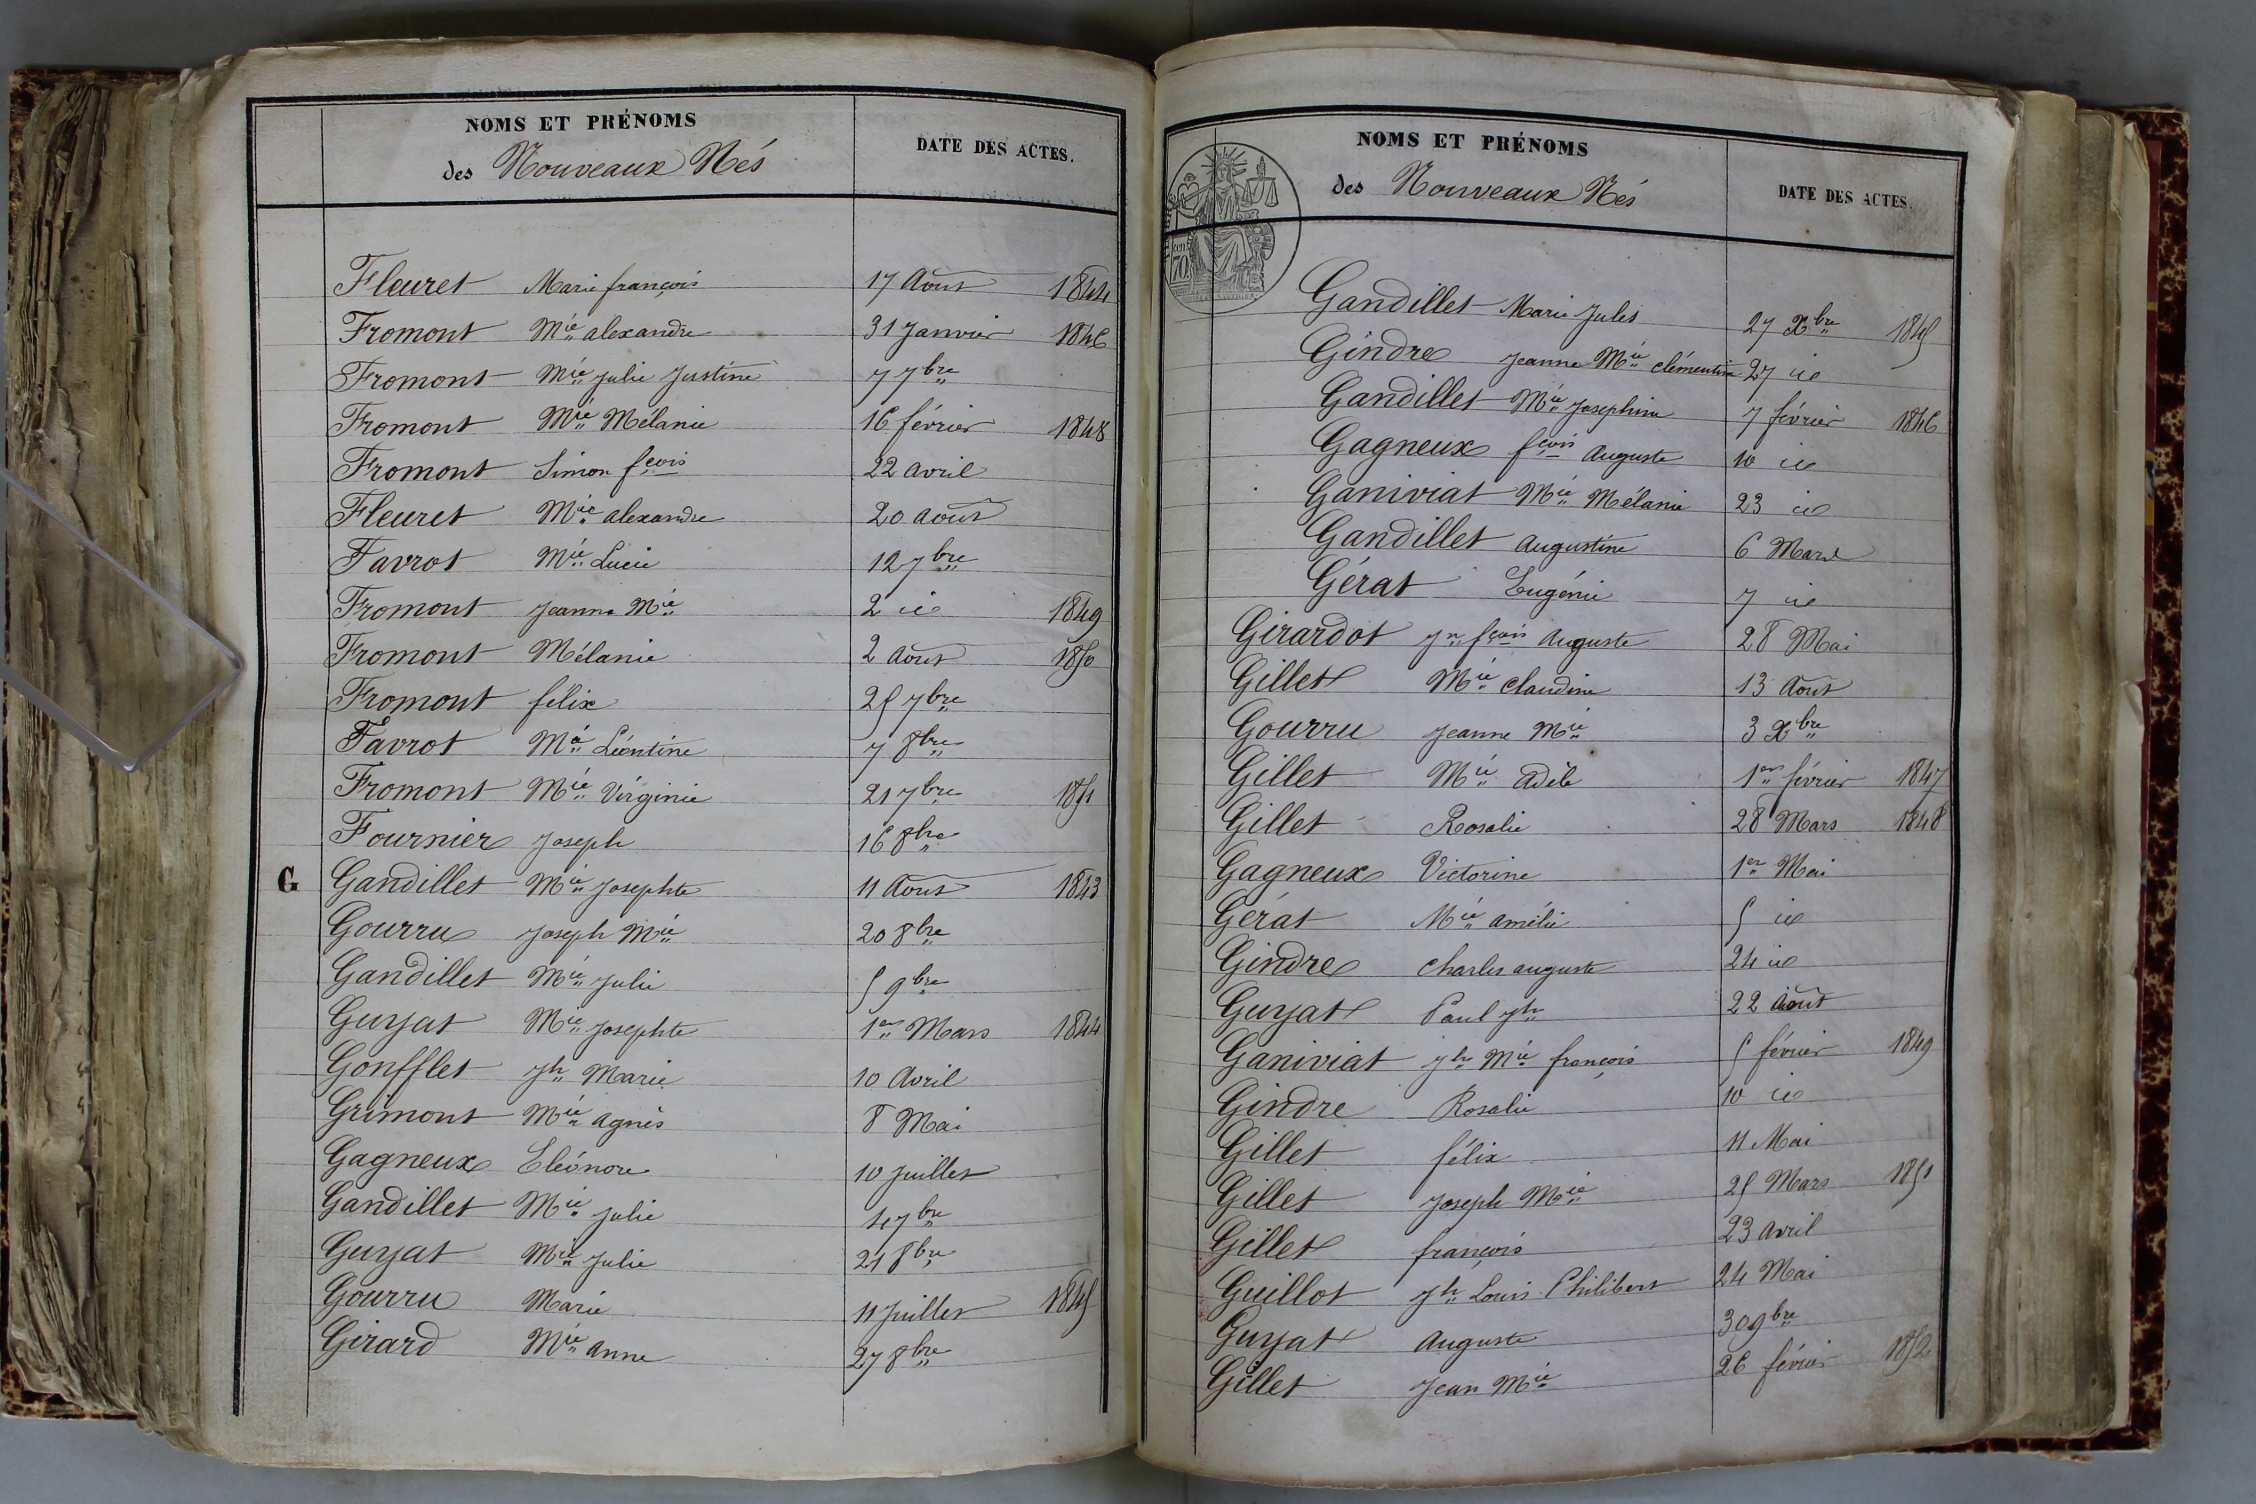 NOMS ET PRÉNOMS
des Nouveaux Nés
DATE DES ACTES.
Fleuret Marie françois 17 Août 1844
Fromont Mie alexandre 31 Janvier 1846
Fromont Mie Julie Justine 7 7bre
Fromont Mie Mélanie 16 février 1848
Fromont Simon fçois 22 avril
Fleuret Mie alexandre 20 août
Favrot Mie Lucie 12 7bre
Fromont Jeanne Mie 2 id 1849
Fromont Mélanie 2 août 1850
Fromont felix 25 7bre
Favrot Mie Léontine 7 8bre
Fromont Mie Virginie 21 7bre 1851
Fournier Joseph 16 8bre
G Gandillet Mie Josephte 11 Août 1843
Gourru Joseph Mie 20 8bre
Gandillet Mie Julie 5 9bre
Guyat Mie Josephte 1er Mars 1844
Gonfflet Jh Marie 10 Avril
Grimont Mie agnès 8 Mai
Gagneux Eléonore 10 Juillet
Gandillet Mie Julie 4 7bre
Guyat Mie Julie 21 8bre
Gourru Marie 11 Juillet 1845
Girard Mie anne 27 8bre
NOMS ET PRÉNOMS
des Nouveaux Nés
DATE DES ACTES.
70
Gandillet Marie Jules 27 Xbre 1845
Gindre Jeanne Mie clémentine 27 id
Gandillet Mie Josephine 7 février 1846
Gagneux fçois Auguste 10 id
Ganiviat Mie Mélanie 23 id
Gandillet augustine 6 Mars
Gérat Eugénie 7 id
Girardot Jn fçois Auguste 28 Mai
Gillet Mie claudine 13 Août
Gourru Jeanne Mie 3 Xbre
Gillet Mie Adèle 1er février 1847
Gillet Rosalie 28 Mars 1848
Gagneux Victorine 1er Mai
Gérat Mie amélie 5 id
Gindre charles auguste 24 id
Guyat Paul Jh 22 août
Ganiviat Jh Mie françois 5 février 1849
Gindre Rosalie 10 id
Gillet félix 11 Mai
Gillet Joseph Mie 25 Mars 1851
Gillet françois 23 avril
Guillot Jh Louis Philibert 24 Mai
Guyat auguste 30 9bre
Gillet Jean Mie 26 février 1852